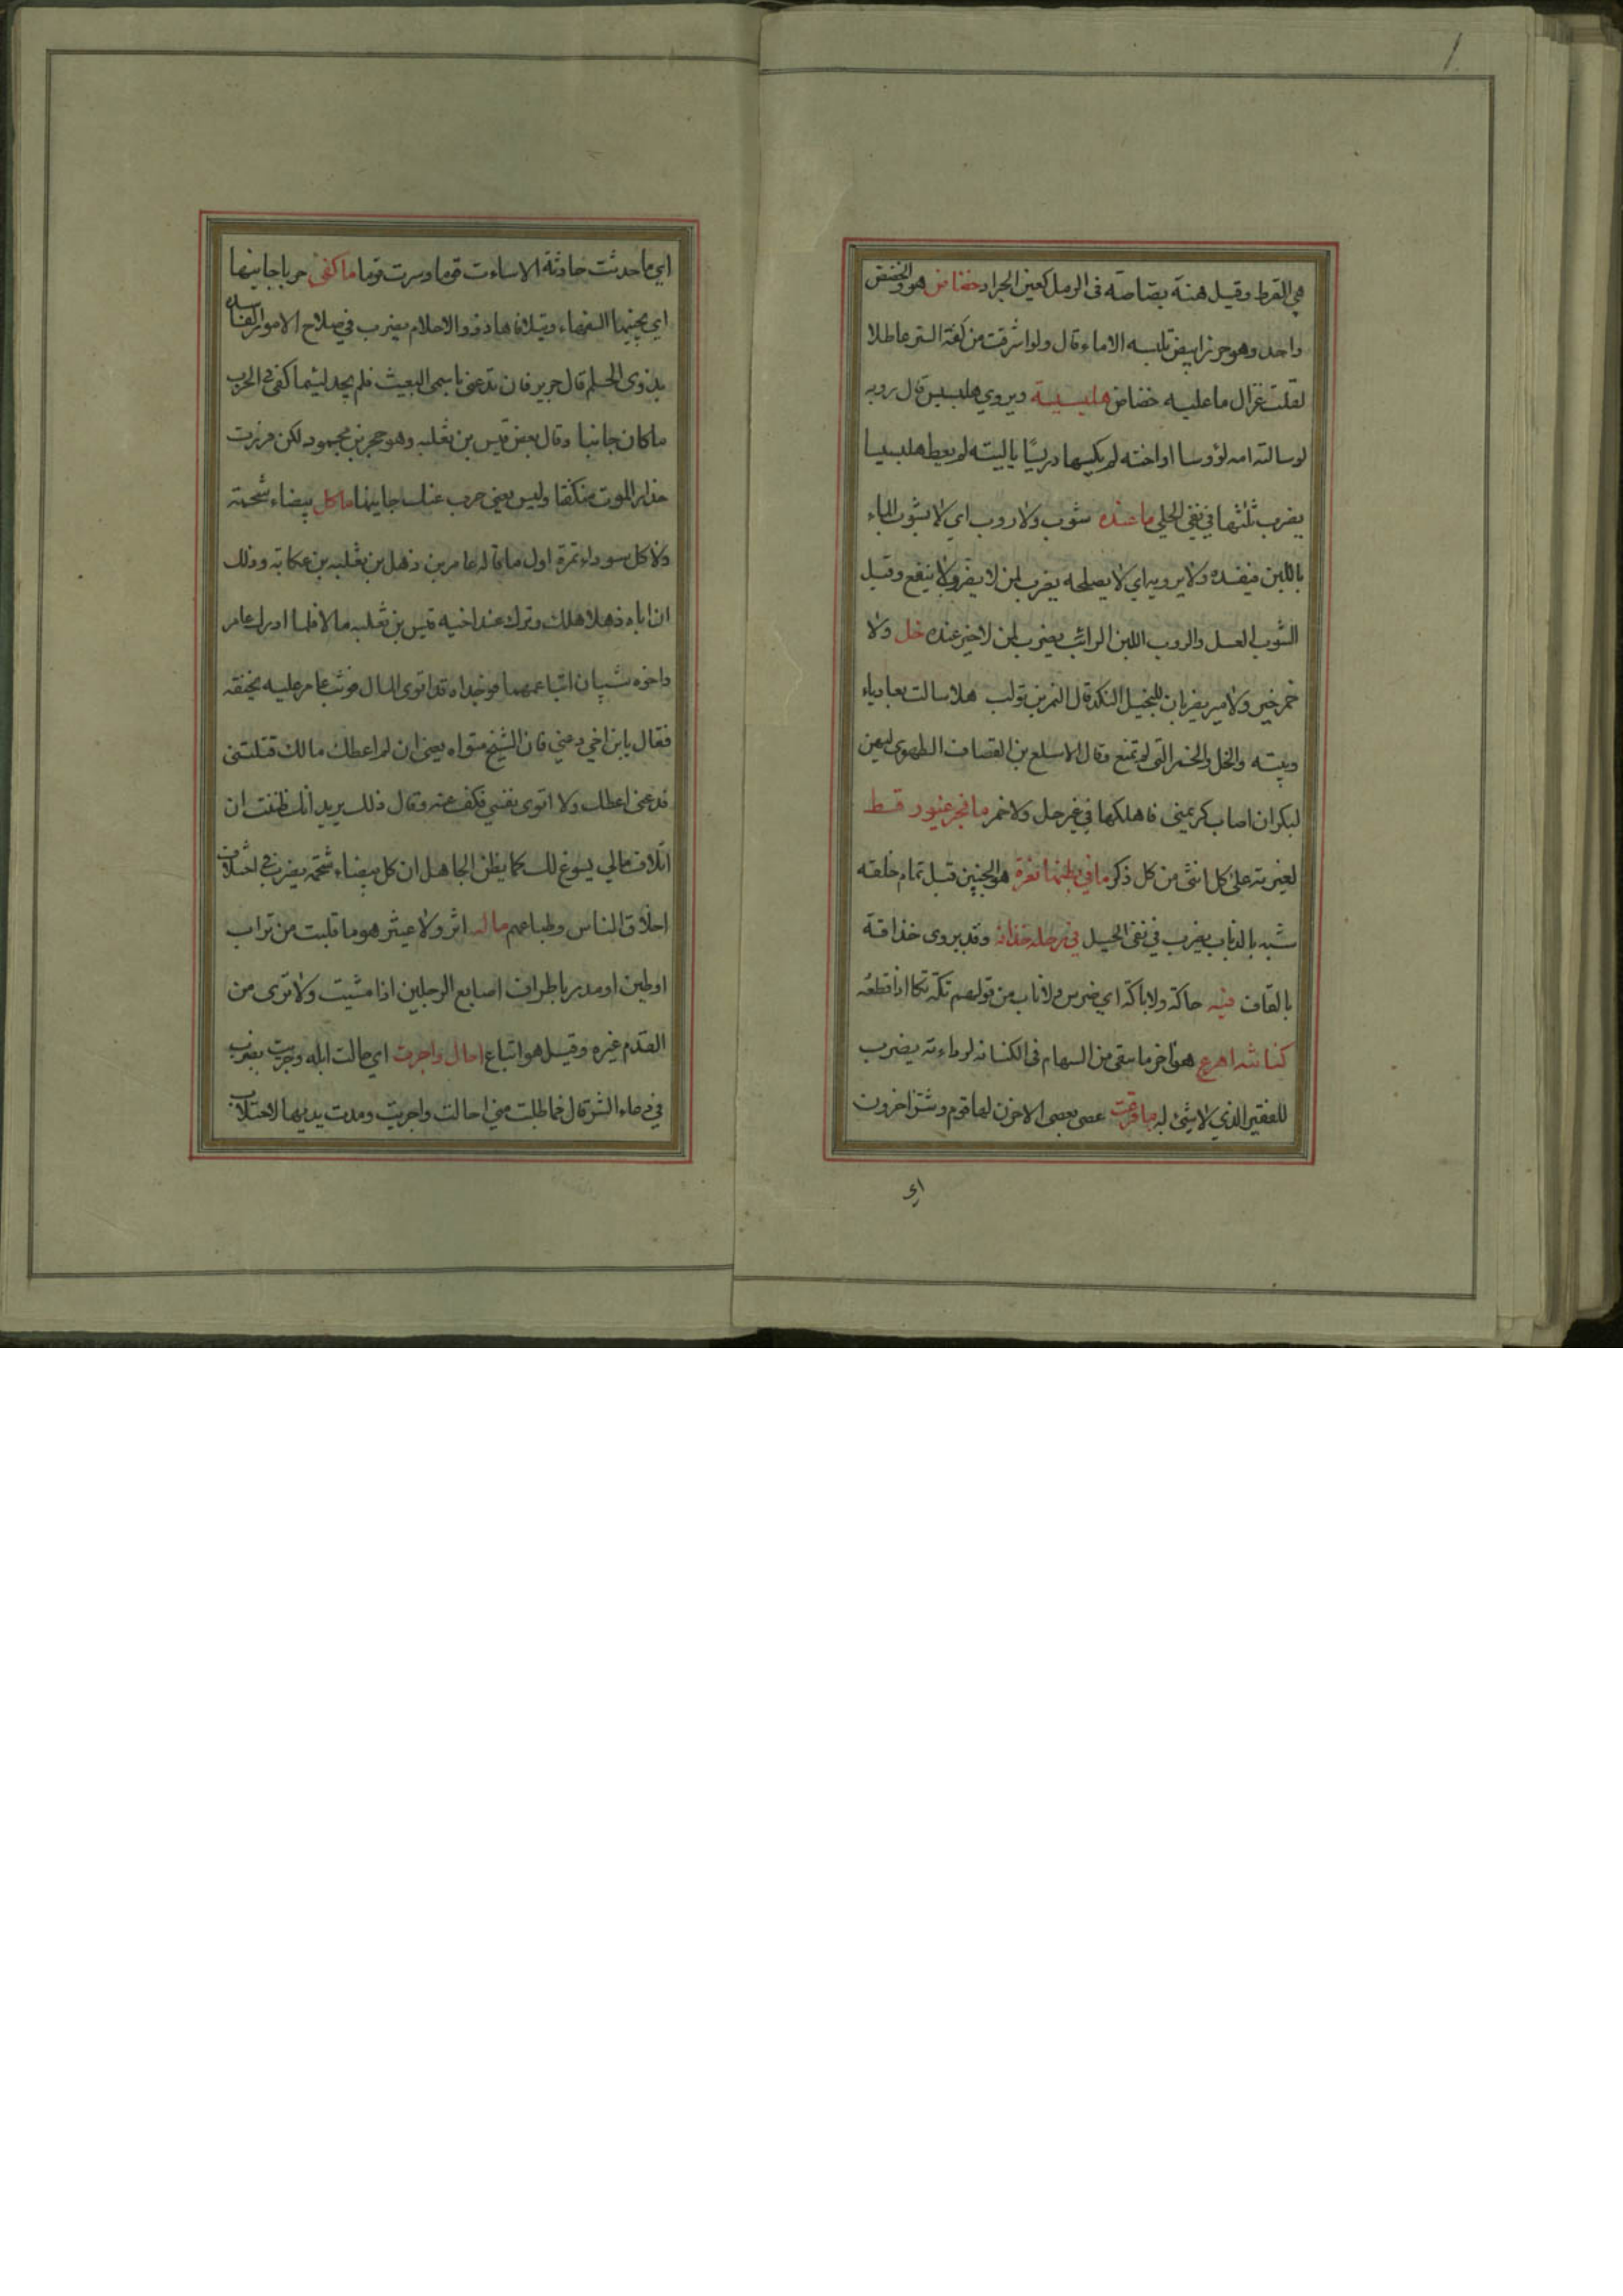 هي القرط وقيل هنة بصاصة في الرمل كعين الجراد خضاض هو والخضض
واحد وهو خرز ابيض تلبسه الاماء قال ولو اشرقت من كفة الستر عاطلا
لقلت غزال ما عليه خضاض هلبسيسة ويروي هلبسيس قال روبه
لو سالته امه لؤوسا او اخته لم يكسها دريسًا ياليته لم يعط هلبسيسا
يضرب ثلثها في نفي الحلي ما عنده شوب ولا روب اي لا يشوب الماء
باللبن فيفسده ولا يرويه اي لا يصلحه يضرب لمن لا يضر ولا ينفع وقيل
الشوب العسل والروب اللبن الرائب يضرب لمن لا خير عنده خل ولا
خمر خير ولا مير يضربان للبخيل النكد قال النمر بن تولب هلا سالت بعادياء
وبيته والخل والخمر التي لم تمنع وقال الاسلع بن القصاف الطهوي ليهن
لبكر ان اصاب كريمتي فاهلكها في غير حل ولا خمر ما فجر غيور قط
لغيرته على كل انثى من كل ذكر ما في بطنها نغرة هو الجنين قبل تمام خلقه
شبه بالذباب يضرب في نفي الحبل في رحله حذافة وقد يروى خذافة
بالقاف فيه حاكة ولا تاكة اي ضرس ولا ناب من قولهم تكه تكا اذا قطعه
كنانته اهزع هو اخر ما يبقى من السهام في الكنانه لرداءته يضرب
للفقير الذي لا شئ له ما قرعت عصى بعصى الا حزن لها قوم وسر اخرون
اي
اي ما حدثت حادثة الا ساءت قوما وسرت قوما ما كفى حربا جانيها
اي يجنيها السفهاء ويتلافاها ذوو الاحلام يضرب في صلاح الامور الفاسده
بذوى الحلم قال جرير فان تدعني باسمى البعيث فلم يجد لئيما كفى في الحرب
ما كان جانبا وقال بعض قيس بن ثعلبه وهو حجر بن محمود لكن فررت
حذار الموت منكفتا وليس يغني حرب عنك جانيها ما كل بيضاء شحمة
ولا كل سوداء تمرة اول ما قاله عامر بن ذهل بن ثعلبه بن عكابة وذلك
ان اباه ذهلا هلك وترك عند اخيه قيس بن ثعلبه مالا فلما ادرك عامر
واخوه شيبان اتيا عمهما فوجداه قد اتوى المال فوثب عامر عليه يخنقه
فقال يا ابن اخي دعني فان الشيخ متواه يعني ان لم اعطك مالك قتلتني
فدعني اعطك ولا اتوى بنفسي فكف عنه وقال ذلك يريد انك ظننت ان
اتلاف مالي يسوغ لك كما يظن الجاهل ان كل بيضاء شحمة يضرب في اختلاف
اخلاق الناس وطباعهم ما له اثر ولا عيثر هو ما قلبت من تراب
او طين او مدر باطراف اصابع الرجلين اذا مشيت ولا ترى من
القدم غيره وقيل هو اتباع احال واجرت اي حالت ابله وجربت يضرب
في دعاء الشر قال فما طلبت مني احالت واجربت ومدت يديها لاحتلاب